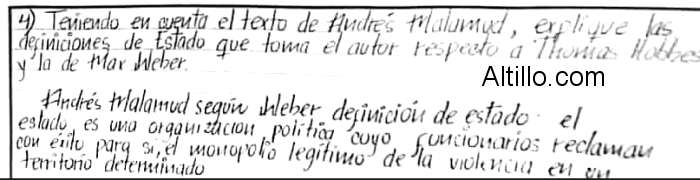 4) Teniendo en cuenta el texto de Andrés Malamud, explique las
definiciones de Estado que toma el autor respecto a Thomas Hobbes
y la de Max Weber.
Altillo.com
Andrés Malamud según Weber definición de estado: el
estado es una organización política cuyo funcionarios reclaman
con exito para si, el monopolio legítimo de la violencia en un
territorio determinado